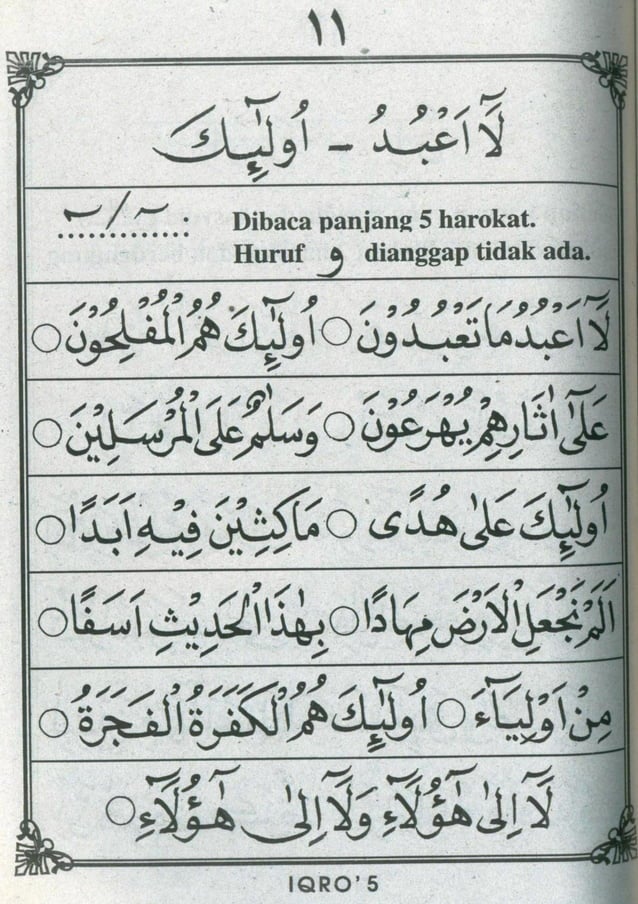 ١١
لَآ اَعْبُدُ - اُولٰٓئِكَ
Dibaca panjang 5 harokat.
Huruf و dianggap tidak ada.
لَآ اَعْبُدُ مَا تَعْبُدُوْنَ ○ اُولٰٓئِكَ هُمُ الْمُفْلِحُوْنَ ○
عَلٰٓى اٰثَارِهِمْ يُهْرَعُوْنَ ○ وَسَلٰمٌ عَلَى الْمُرْسَلِيْنَ ○
اُولٰٓئِكَ عَلٰى هُدًى ○ مَاكِثِيْنَ فِيْهِ اَبَدًا ○
اَلَمْ نَجْعَلِ الْاَرْضَ مِهَادًا ○ بِهٰذَا الْحَدِيْثِ اَسَفًا ○
مِنْ اَوْلِيَآءَ ○ اُولٰٓئِكَ هُمُ الْكَفَرَةُ الْفَجَرَةُ ○
لَآ اِلٰى هٰٓؤُلَآءِ وَلَآ اِلٰى هٰٓؤُلَآءِ ○
IQRO'5